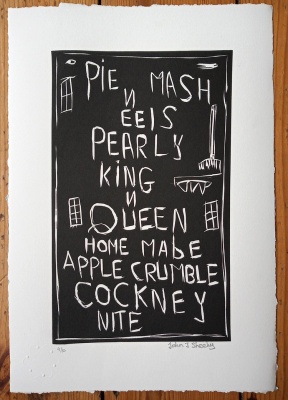 PiE MASH
N
EElS
PEARLY
KiNG
N
QUEEN
HOME MADE
APPLE CRUMBLE
COCKNEY
NITE
John J. Sheehy